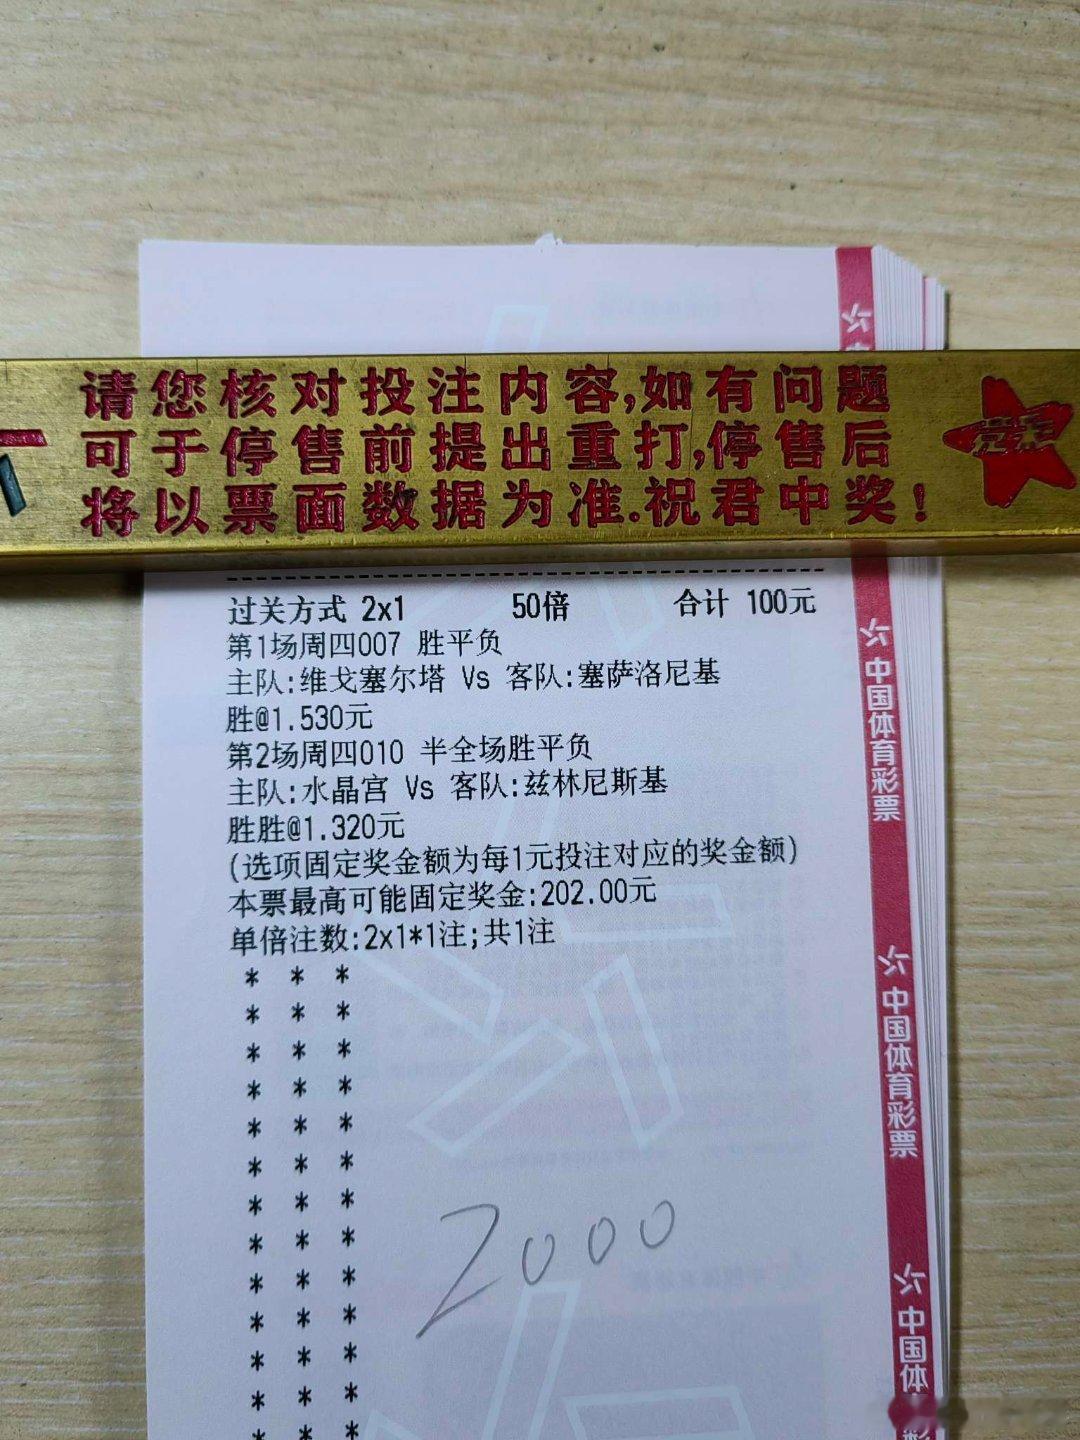 请您核对投注内容,如有问题
可于停售前提出重打,停售后
将以票面数据为准.祝君中奖!
过关方式 2x1 50倍 合计 100元
第1场周四007 胜平负
主队:维戈塞尔塔 Vs 客队:塞萨洛尼基
胜@1.530元
第2场周四010 半全场胜平负
主队:水晶宫 Vs 客队:兹林尼斯基
胜胜@1.320元
(选项固定奖金额为每1元投注对应的奖金额)
本票最高可能固定奖金:202.00元
单倍注数:2x1*1注;共1注
* * *
* * *
* * *
* * *
* * *
* * *
* * *
* * *
* * *
* * *
* * *
* * *
* * *
2000
中国体育彩票
中国体育彩票
中国体彩